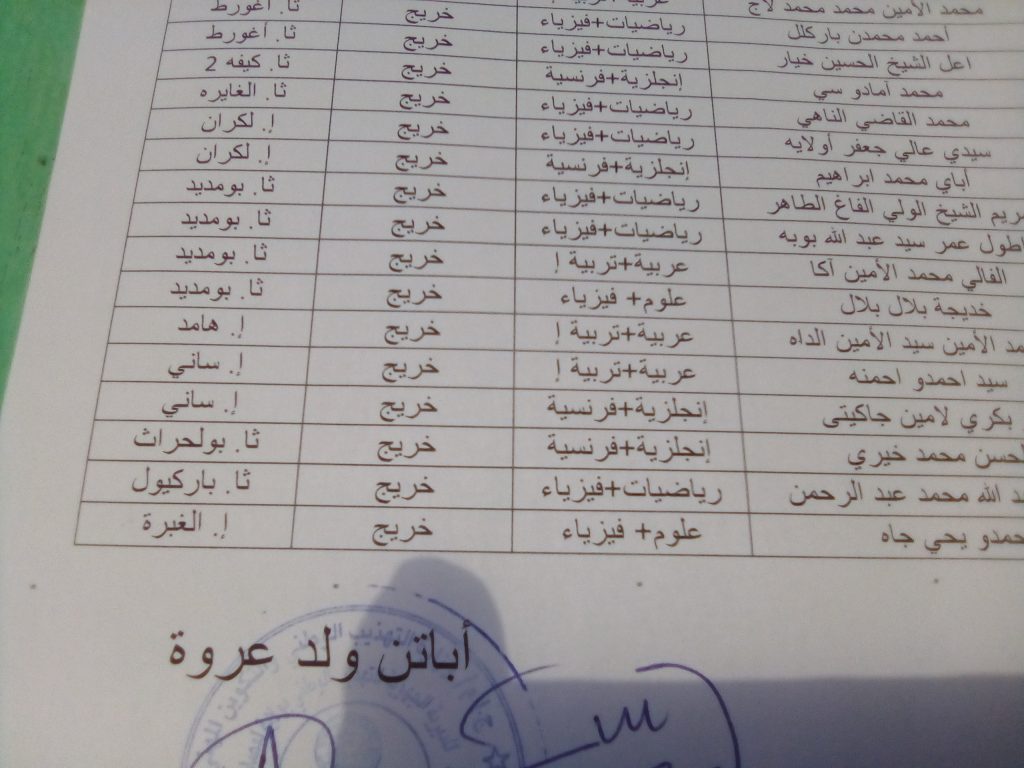 محمد الأمين محمد محمد لاج ثا. أغورط
أحمد محمدن باركلل رياضيات+فيزياء خريج ثا. أغورط
اعل الشيخ الحسين خيار رياضيات+فيزياء خريج ثا. كيفه 2
محمد أمادو سي إنجلزية+فرنسية خريج ثا. الغايره
محمد القاضي الناهي رياضيات+فيزياء خريج إ. لكران
سيدي عالي جعفر أولايه رياضيات+فيزياء خريج إ. لكران
أباي محمد ابراهيم إنجلزية+فرنسية خريج ثا. بومديد
الشيخ الولي الفاغ الطاهر رياضيات+فيزياء خريج ثا. بومديد
عمر سيد عبد الله بوبه رياضيات+فيزياء خريج ثا. بومديد
الفالي محمد الأمين آكا عربية+تربية إ خريج ثا. بومديد
خديجة بلال بلال علوم+ فيزياء خريج إ. هامد
الأمين سيد الأمين الداه عربية+تربية إ خريج إ. ساني
سيد احمدو احمنه عربية+تربية إ خريج إ. ساني
بكري لامين جاكيتى إنجلزية+فرنسية خريج ثا. بولحراث
محمد خيري إنجلزية+فرنسية خريج ثا. باركيول
الله محمد عبد الرحمن رياضيات+فيزياء خريج إ. الغبرة
يحي جاه علوم+ فيزياء خريج
أباتن ولد عروة